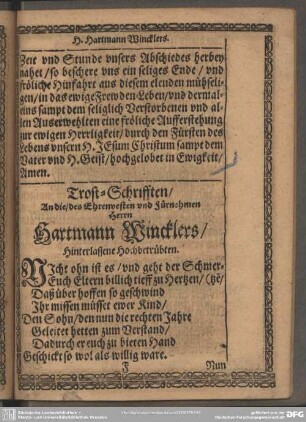 H. Hartmann Wincklers.
Zeit vnd Stunde vnsers Abschiedes herbey
nahet / so beschere vns ein seliges Ende / vnd
fröliche Hinfahrt aus diesem elenden mühseli-
gen / in das ewige Frewden-Leben / vnd dermal-
eins sampt dem seliglich Verstorbenen vnd al-
len Auserwehlten eine fröliche Aufferstehung
zur ewigen Herrligkeit / durch den Fürsten des
Lebens vnsern H. JEsum Christum sampt dem
Vater vnd H. Geist / hochgelobet in Ewigkeit /
Amen.
Trost-Schrifften /
An die / des Ehrenvesten vnd Fürnehmen
Herrn
Hartmann Wincklers /
Hinterlassene Hochbetrübten.
NJcht ohn ist es / vnd geht der Schmer-
Euch Eltern billich tieff zu Hertzen / (tzē
Daß über hoffen so geschwind
Ihr missen müsset ewer Kind /
Den Sohn / dem nun die rechten Jahre
Geleitet hetten zum Verstand /
Dadurch er euch zu bieten Hand
Geschickt so wol als willig ware.
F
Nun